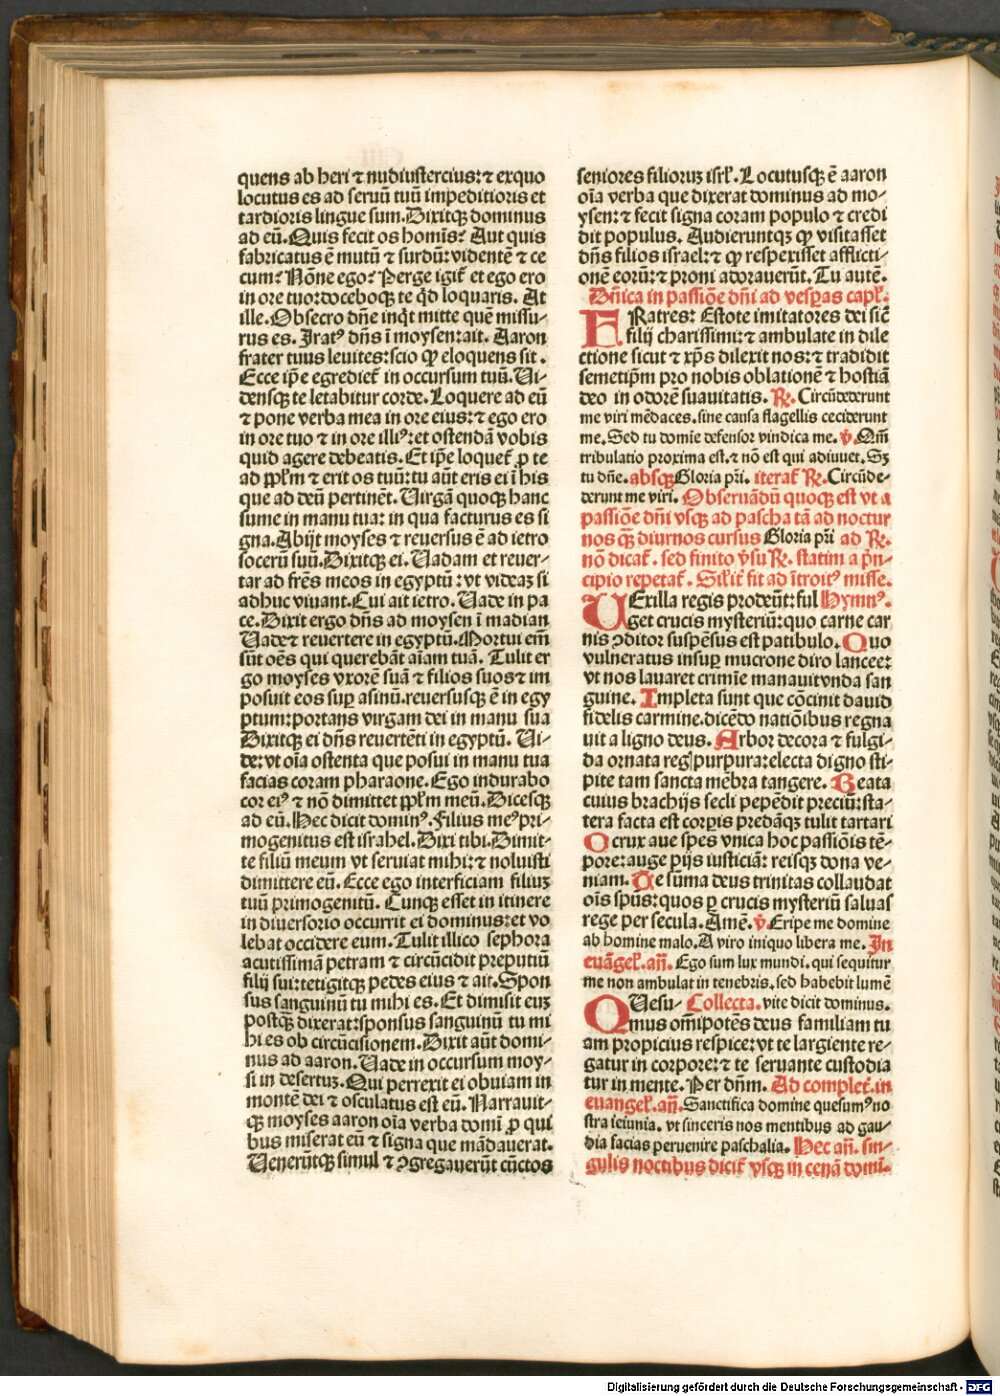 quens ab heri ⁊ nudiustercius:⁊ exquo
locutus es ad seruū tuū impeditioris et
tardioris lingue sum.Dixitqꝫ dominus
ad eū.Quis fecit os homīs? Aut quis
fabricatus ē mutū ⁊ surdū:videntē ⁊ ce
cum? Nōne ego? Perge igit̄ et ego ero
in ore tuo:doceboqꝫ te qd̄ loquaris. At
ille.Obsecro dn̄e inqt mitte quē missu-
rus es. Jratꝰ dn̄s ī moysen:ait. Aaron
frater tuus leuites:scio ꝙ eloquens sit.
Ecce ip̄e egrediet̄ in occursum tuū.Ui-
densqꝫ te letabitur corde.Loquere ad eū
⁊ pone verba mea in ore eius:⁊ ego ero
in ore tuo ⁊ in ore illiꝰ:et ostendā vobis
quid agere debeatis.Et ip̄e loquet̄ ꝓ te
ad pplm̄ ⁊ erit os tuū:tu aūt eris ei ī his
que ad deū pertinēt.Uirgā quoqꝫ hanc
sume in manu tua: in qua facturus es si
gna.Abijt moyses ⁊ reuersus ē ad ietro
socerū suū.Dixitqꝫ ei.Uadam et reuer-
tar ad frēs meos in egyptū:vt videaꝫ si
adhuc viuant.Cui ait ietro.Uade in pa
ce.Dixit ergo dn̄s ad moysen ī madian
Uade⁊ reuertere in egyptū.Mortui em̄
sūt oēs qui querebāt aīam tuā. Tulit er
go moyses vxorē suā ⁊ filios suos⁊ im
posuit eos suꝑ asinū.reuersusqꝫ ē in egy
ptum:portans virgam dei in manu sua
Dixitqꝫ ei dn̄s reuertēti in egyptū. Ui-
de:vt oīa ostenta que posui in manu tua
facias coram pharaone. Ego indurabo
cor eiꝰ ⁊ nō dimittet pplm̄ meū.Dicesqꝫ
ad eū.Hec dicit dominꝰ.Filius meꝰpri-
mogenitus est israhel.Dixi tibi.Dimit-
te filiū meum vt seruiat mihi:⁊ noluisti
dimittere eū. Ecce ego interficiam filiuꝫ
tuū primogenitū.Cunqꝫ esset in itinere
in diuersorio occurrit ei dominus:et vo
lebat occidere eum.Tulit illico sephora
acutissimā petram ⁊ circūcidit preputiū
filij sui:tetigitqꝫ pedes eius ⁊ ait.Spon
sus sanguinū tu mihi es. Et dimisit euꝫ
postqꝫ dixerat:sponsus sanguinū tu mi
hi es ob circūcisionem.Dixit aūt domi-
nus ad aaron.Uade in occursum moy-
si in desertuꝫ.Qui perrexit ei obuiam in
montē dei ⁊ osculatus est eū.Narrauit-
qꝫ moyses aaron oīa verba domī ꝓ qui
bus miserat eū ⁊ signa que mādauerat.
Uenerūtqꝫ simul ⁊ ↄgregauerūt cūctos
seniores filioruꝫ isrl̄.Locutusqꝫ ē aaron
oīa verba que dixerat dominus ad mo-
ysen:⁊ fecit signa coram populo ⁊ credi
dit populus. Audieruntqꝫ ꝙ visitasset
dn̄s filios israel:⁊ ꝙ respexisset afflicti-
onē eorū:⁊ proni adorauerūt. Tu autē.
Dn̄ica in passiōe dn̄i ad vesꝑas capl̄.
FRatres: Estote imitatores dei sic̄
filij charissimi:⁊ ambulate in dile
ctione sicut ⁊ xp̄s dilexit nos:⁊ tradidit
semetip̄m pro nobis oblationē ⁊ hostiā
deo in odorē suauitatis. ℟. Circūdederunt
me viri mēdaces.sine causa flagellis ceciderunt
me.Sed tu domie defensor vindica me. ℣.Qm̄
tribulatio proxima est.⁊ nō est qui adiuuet.Sꝫ
tu dn̄e.absqꝫGloria pr̄i. iterat̄ ℟.Circūde-
derunt me viri. Obseruādū quoqꝫ est vt a
passiōe dn̄i vsqꝫ ad pascha tā ad noctur
nos qꝫ̄ diurnos cursus Gloria pr̄i ad ℟.
nō dicat̄. sed finito v̄su ℟. statim a prin-
cipio repetat̄. Silit̄ fit ad ītroitꝰ misse.
UExilla regis prodeūt:ful Hymnꝰ.
get crucis mysteriū:quo carne car
nis ↄditor suspēsus est patibulo.Quo
vulneratus insuꝑ mucrone diro lancee:
vt nos lauaret crimīe manauitvnda san
guine. Impleta sunt que cōcinit dauid
fidelis carmine.dicēdo natiōibus regna
uit a ligno deus. Arbor decora ⁊ fulgi-
da ornata reg purpura:electa digno sti-
pite tam sancta mēbra tangere. Beata
cuius brachijs secli pepēdit preciū:sta-
tera facta est corꝑis predāqꝫ tulit tartari
O crux aue spes vnica hoc passiōis tē-
pore:auge pijs iusticiā: reisqꝫ dona ve-
niam. Te sūma deus trinitas collaudat
oīs spūs:quos ꝑ crucis mysteriū saluas
rege per secula. Amē. ℣.Eripe me domine
ab homine malo.A viro iniquo libera me. In
euāgel̄.an̄. Ego sum lux mundi. qui sequitur
me non ambulat in tenebris. sed habebit lumē
QUesu- Collecta. vite dicit dominus.
mus om̄ipotēs deus familiam tu
am propicius respice:vt te largiente re-
gatur in corpore:⁊ te seruante custodia
tur in mente. Per dn̄m. Ad complet̄.in
euangel̄.an̄.Sanctifica domine quesumꝰno
stra ieiunia. vt sinceris nos mentibus ad gau-
dia facias peruenire paschalia. Hec an̄. sin-
gulis noctibus dicit̄ vsqꝫ in cenā domī.
Digitalisierung gefördert durch die Deutsche Forschungsgemeinschaft - DFG